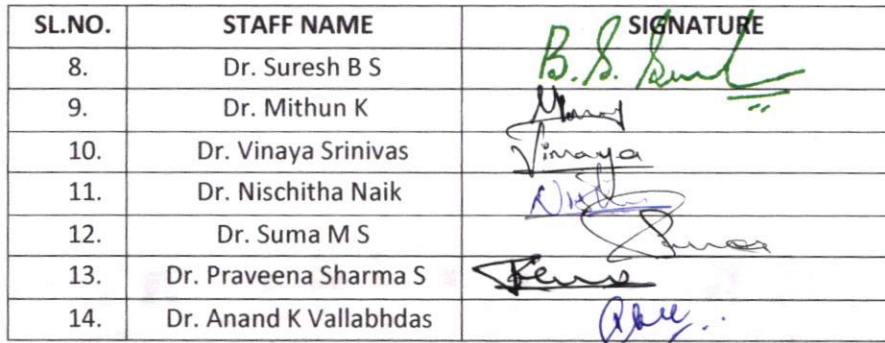 SL.NO. STAFF NAME SIGNATURE
8. Dr. Suresh B S B.S.
9. Dr. Mithun K
10. Dr. Vinaya Srinivas Vinaya
11. Dr. Nischitha Naik
12. Dr. Suma M S
13. Dr. Praveena Sharma S
14. Dr. Anand K Vallabhdas